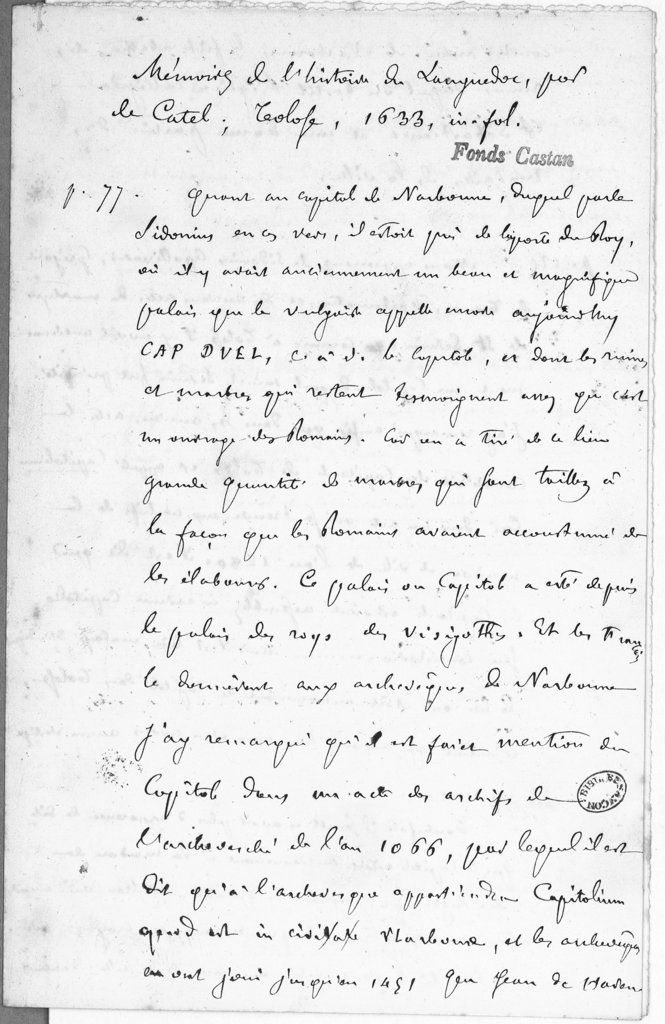 Mémoires de l'histoire du Languedoc, par
de Catel. Tolose, 1633, in-fol.
Fonds Castan
p. 77. Quant au capitol de Narbonne, duquel parle
Sidonius en ces vers, il estoit près de la porte du Roy,
où il y avait anciennement un beau et magnifique
palais que le vulgaire appelle encore aujourd'huy
CAP DUEL, c. à d. le Capitole, et dont les ruines
et marbres qui restent tesmoignent assez que c'est
un ouvrage des Romains. Car on a tiré de ce lieu
grande quantité de marbres qui sont taillez à
la façon que les Romains avaient accoustumé de
les élabourer. Ce palais ou Capitole a esté depuis
le palais des roys des Visigoths. Et les
le donnèrent aux archevêques de Narbonne
J'ay remarqué qu'il est faict mention du
Capitole dans un acte des archifs de
l'archevesché de l'an 1066, par lequel il est
dit qu'à l'archevesque appartiendra Capitolium
quod est in civitate Narbona, et les archevêques
en ont joui jusqu'en 1451 que Jean de
BESANÇON